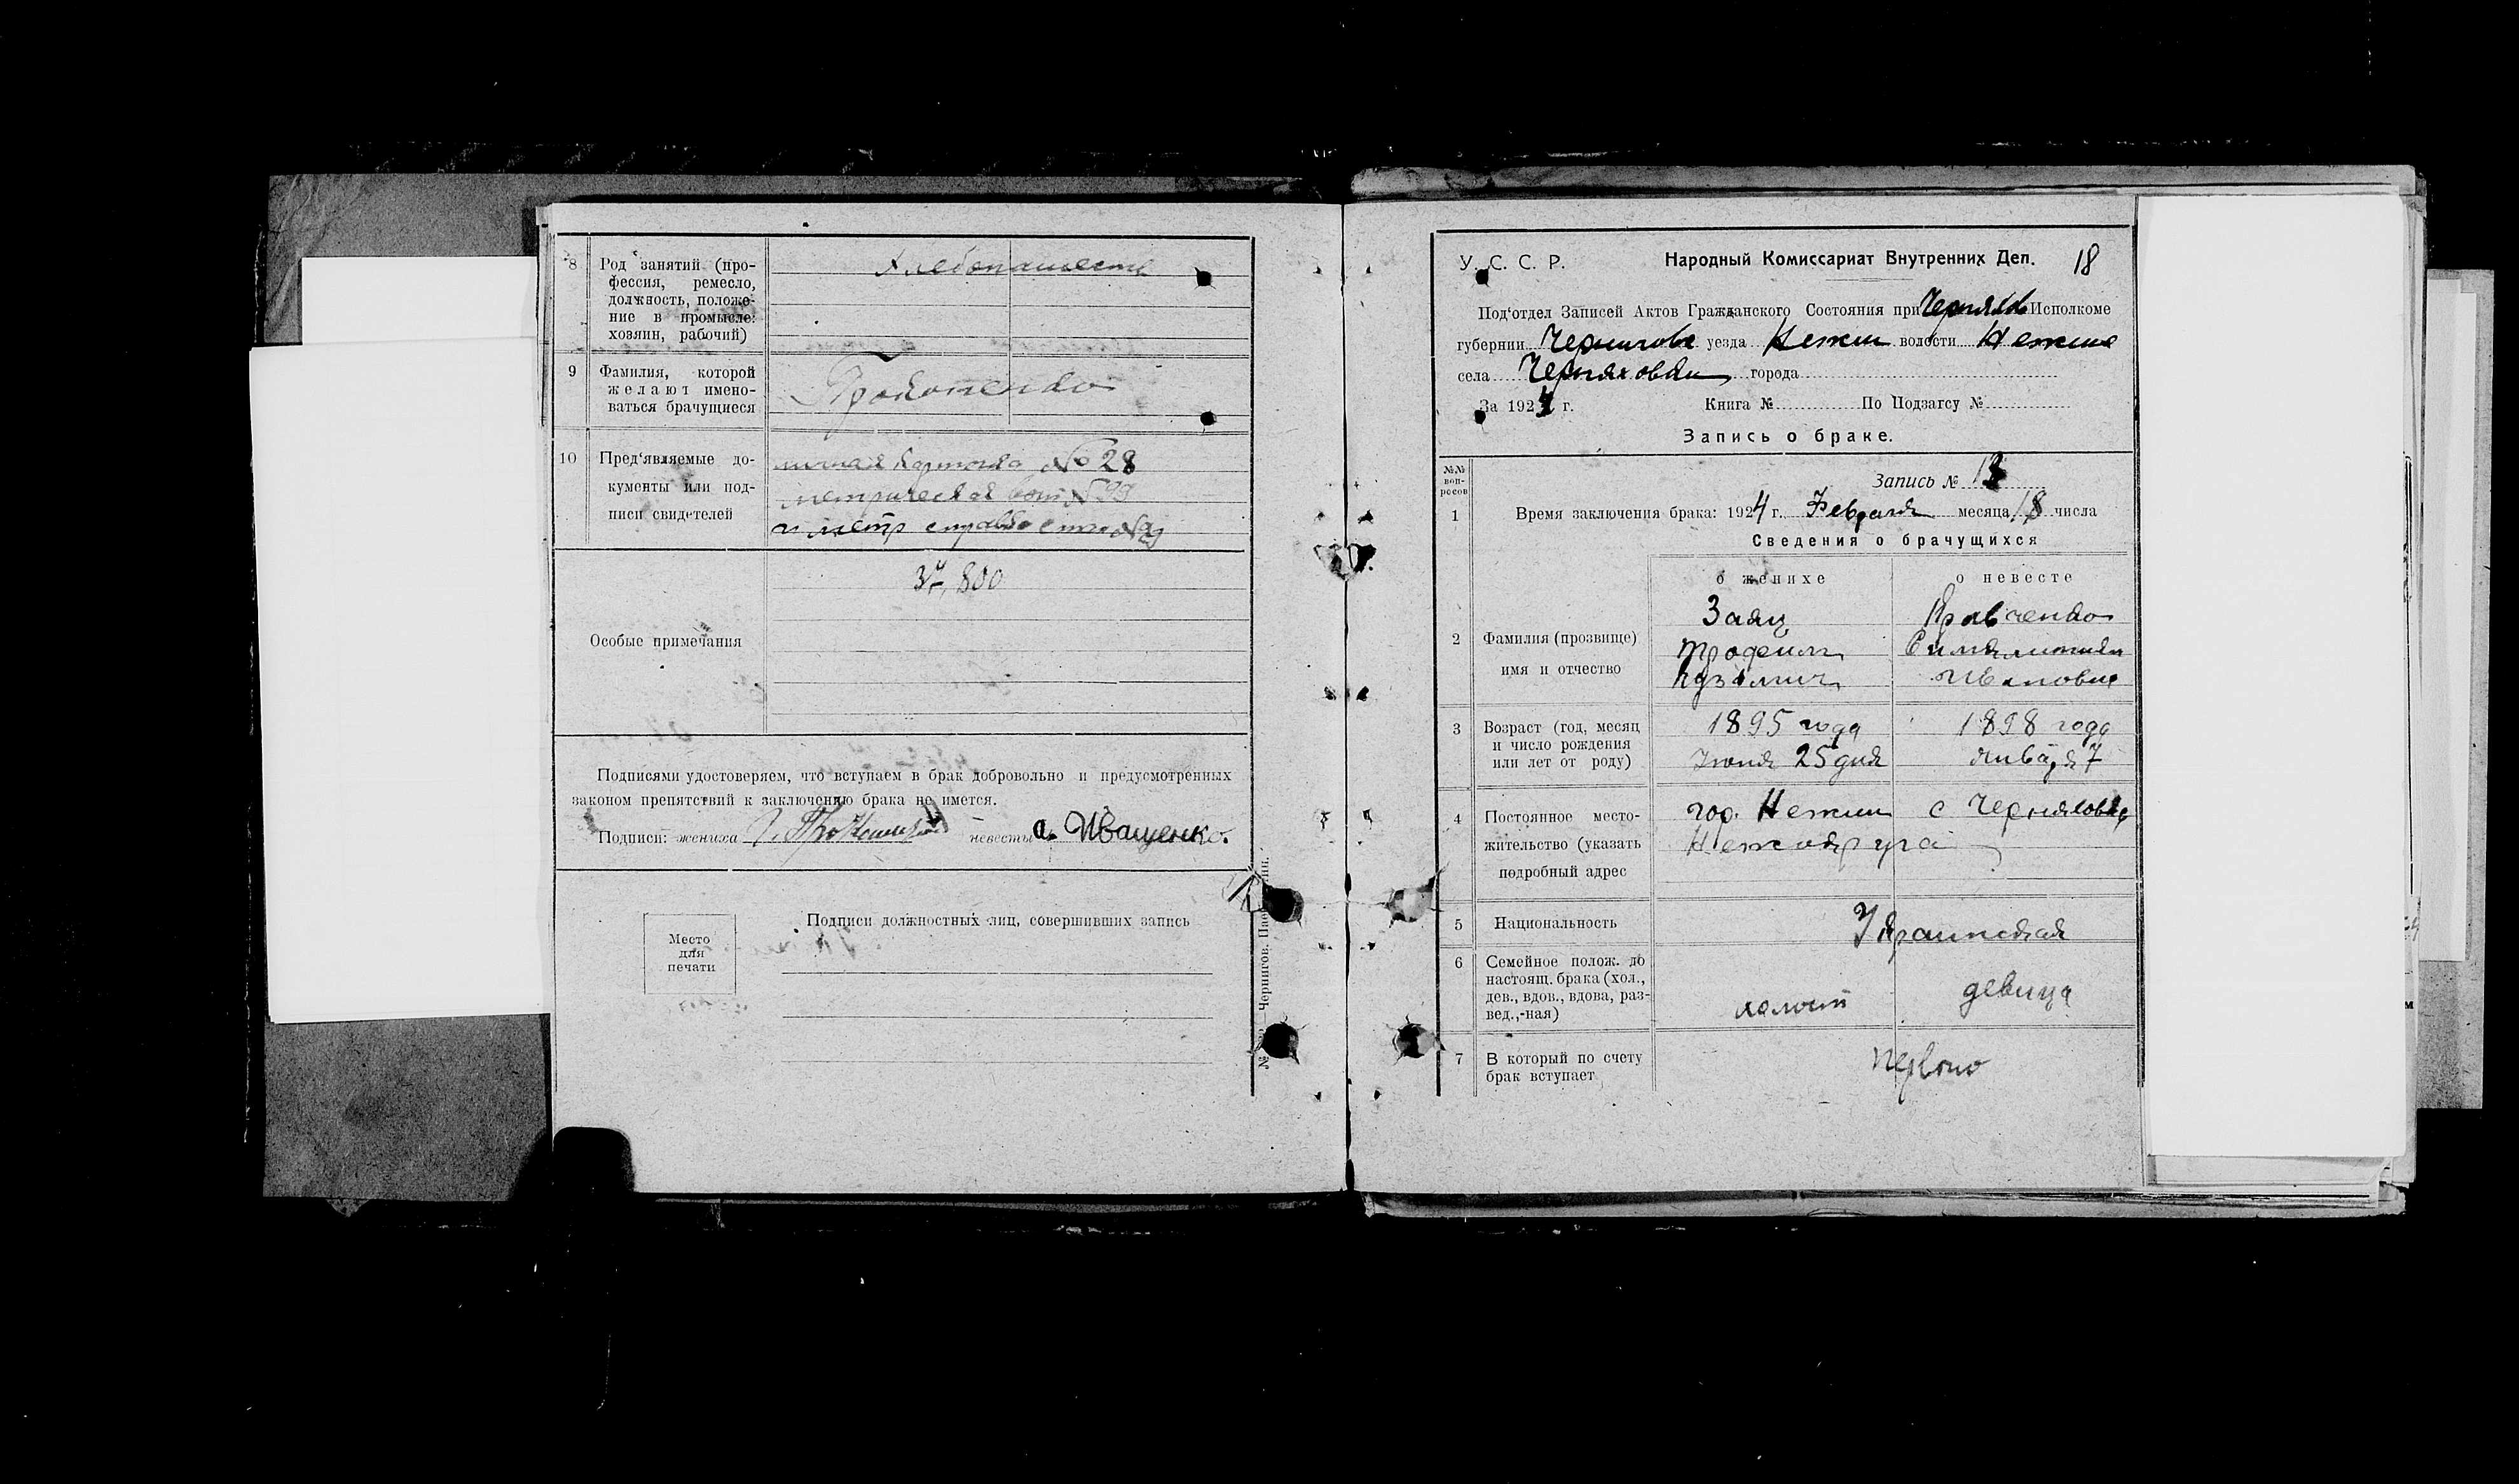 8 Род занятий (про-
фессия, ремесло,
должность, положе-
ние в промысле:
хозяин, рабочий)
Хлебопашество
9 Фамилия, которой
желают имено-
ваться брачущиеся
Прокопенко
10 Пред'являемые до-
кументы или под-
писи свидетелей
личная карточка № 28
метрическая № 99
и метр
Особые примечания
800
Подписями удостоверяем, что вступаем в брак добровольно и предусмотренных
законом препятствий к заключению брака не имется.
Подписи: жениха невесты Иващенко.
Место
для
печати
Подписи должностных лиц, совершивших запись
Чернигов.
У. С. С. Р. Народный Комиссариат Внутренних Дел. 18
Под'отдел Записей Актов Гражданского Состояния при Черняхов Исполкоме
губернии Чернигове уезда Нежин волости Нежине
села Черняховки города
За 1924 г. Книга № По Подзагсу №
Запись о браке.
№№
воп-
росов
Запись № 13
1 Время заключения брака: 1924 г. Февраля месяца 18 числа
Сведения о брачущихся
о женихе о невесте
2 Фамилия (прозвище)
имя и отчество
Заяц
Трофим
Кузьмич
Кравченко
Ивановна
3 Возраст (год, месяц
и число рождения
или лет от роду)
1895 года
25 дня
1898 года
января 7
4 Постоянное место-
жительство (указать
подробный адрес
гор. Нежин
с Черняховка
5 Национальность
Украинская
6 Семейное полож. до
настоящ. брака (хол.,
дев., вдов., вдова, раз-
вед.,-ная)
холост
девица
7 В который по счету
брак вступает
первою